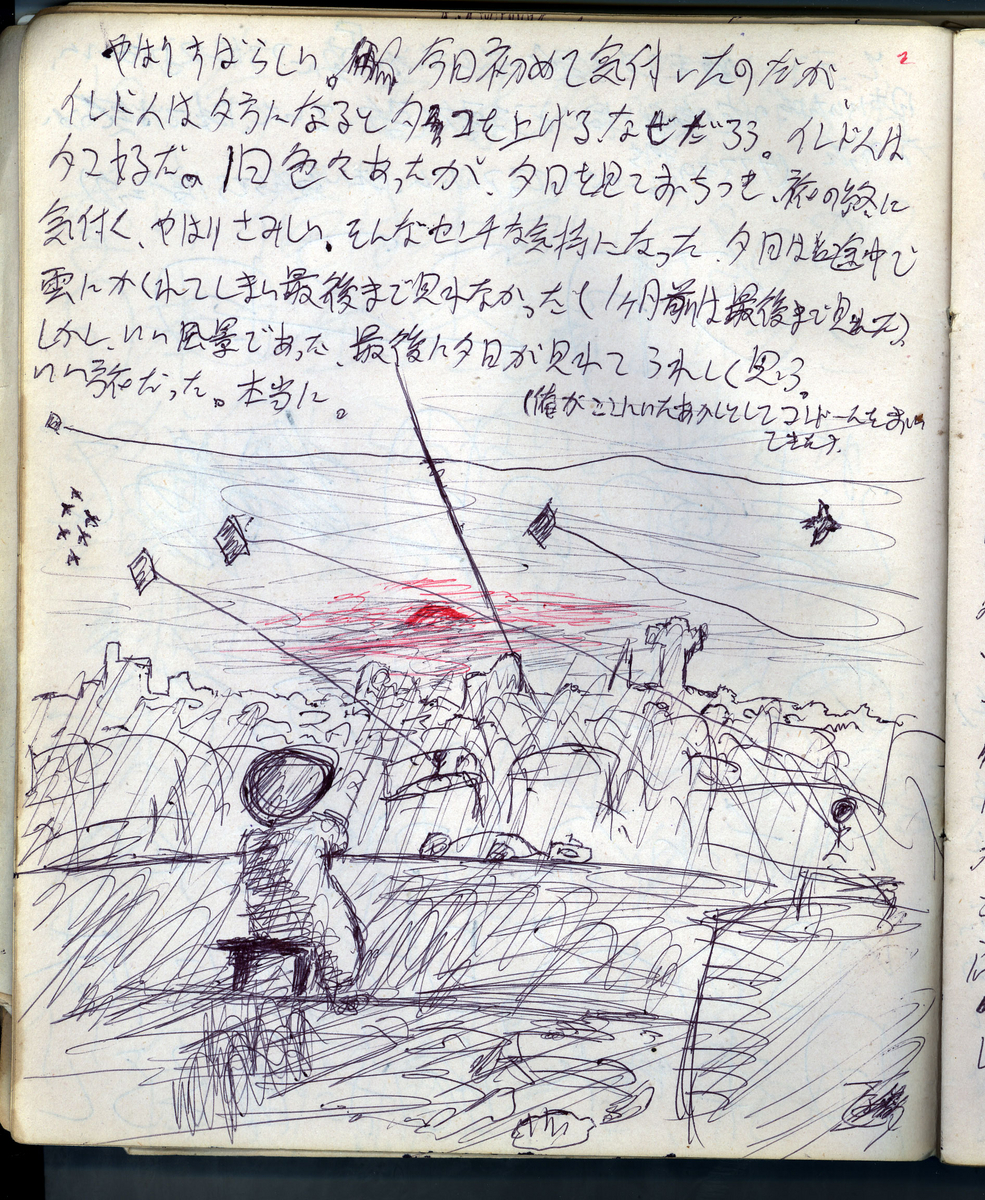 やはりすばらしい。今日初めて気付いたのだが、
イレド人は夕方になるとタコを上げる、なぜだろう。イレド人は
タコ好だ。1日色々あったが、夕日を見ておちつき、旅の終に
気付く、やはりさみしい。そんなセンチな気持になった、夕日は途中で
雲にかくれてしまい最後まで見れなかった(1ヶ月前は最後まで見れた)
しかし、いい風景であった、最後に夕日が見れてうれしく思う。
いい旅だった。本当に。
(俺がここにいたあかしとしてコンドームをおい
てきた).
2